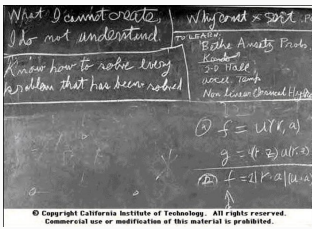 What I cannot create,
I do not understand.
Know how to solve every
problem that has been solved
Why const × sort . Po
TO LEARN:
Bethe Ansatz Prob.
Kondo
2-D Hall
accel. Temp
Non linear Classical Hydro
f = u(r, a)
g = 4(r·z) u(r, z)
f = 2|r·a|(u·a)
© Copyright California Institute of Technology. All rights reserved.
Commercial use or modification of this material is prohibited.